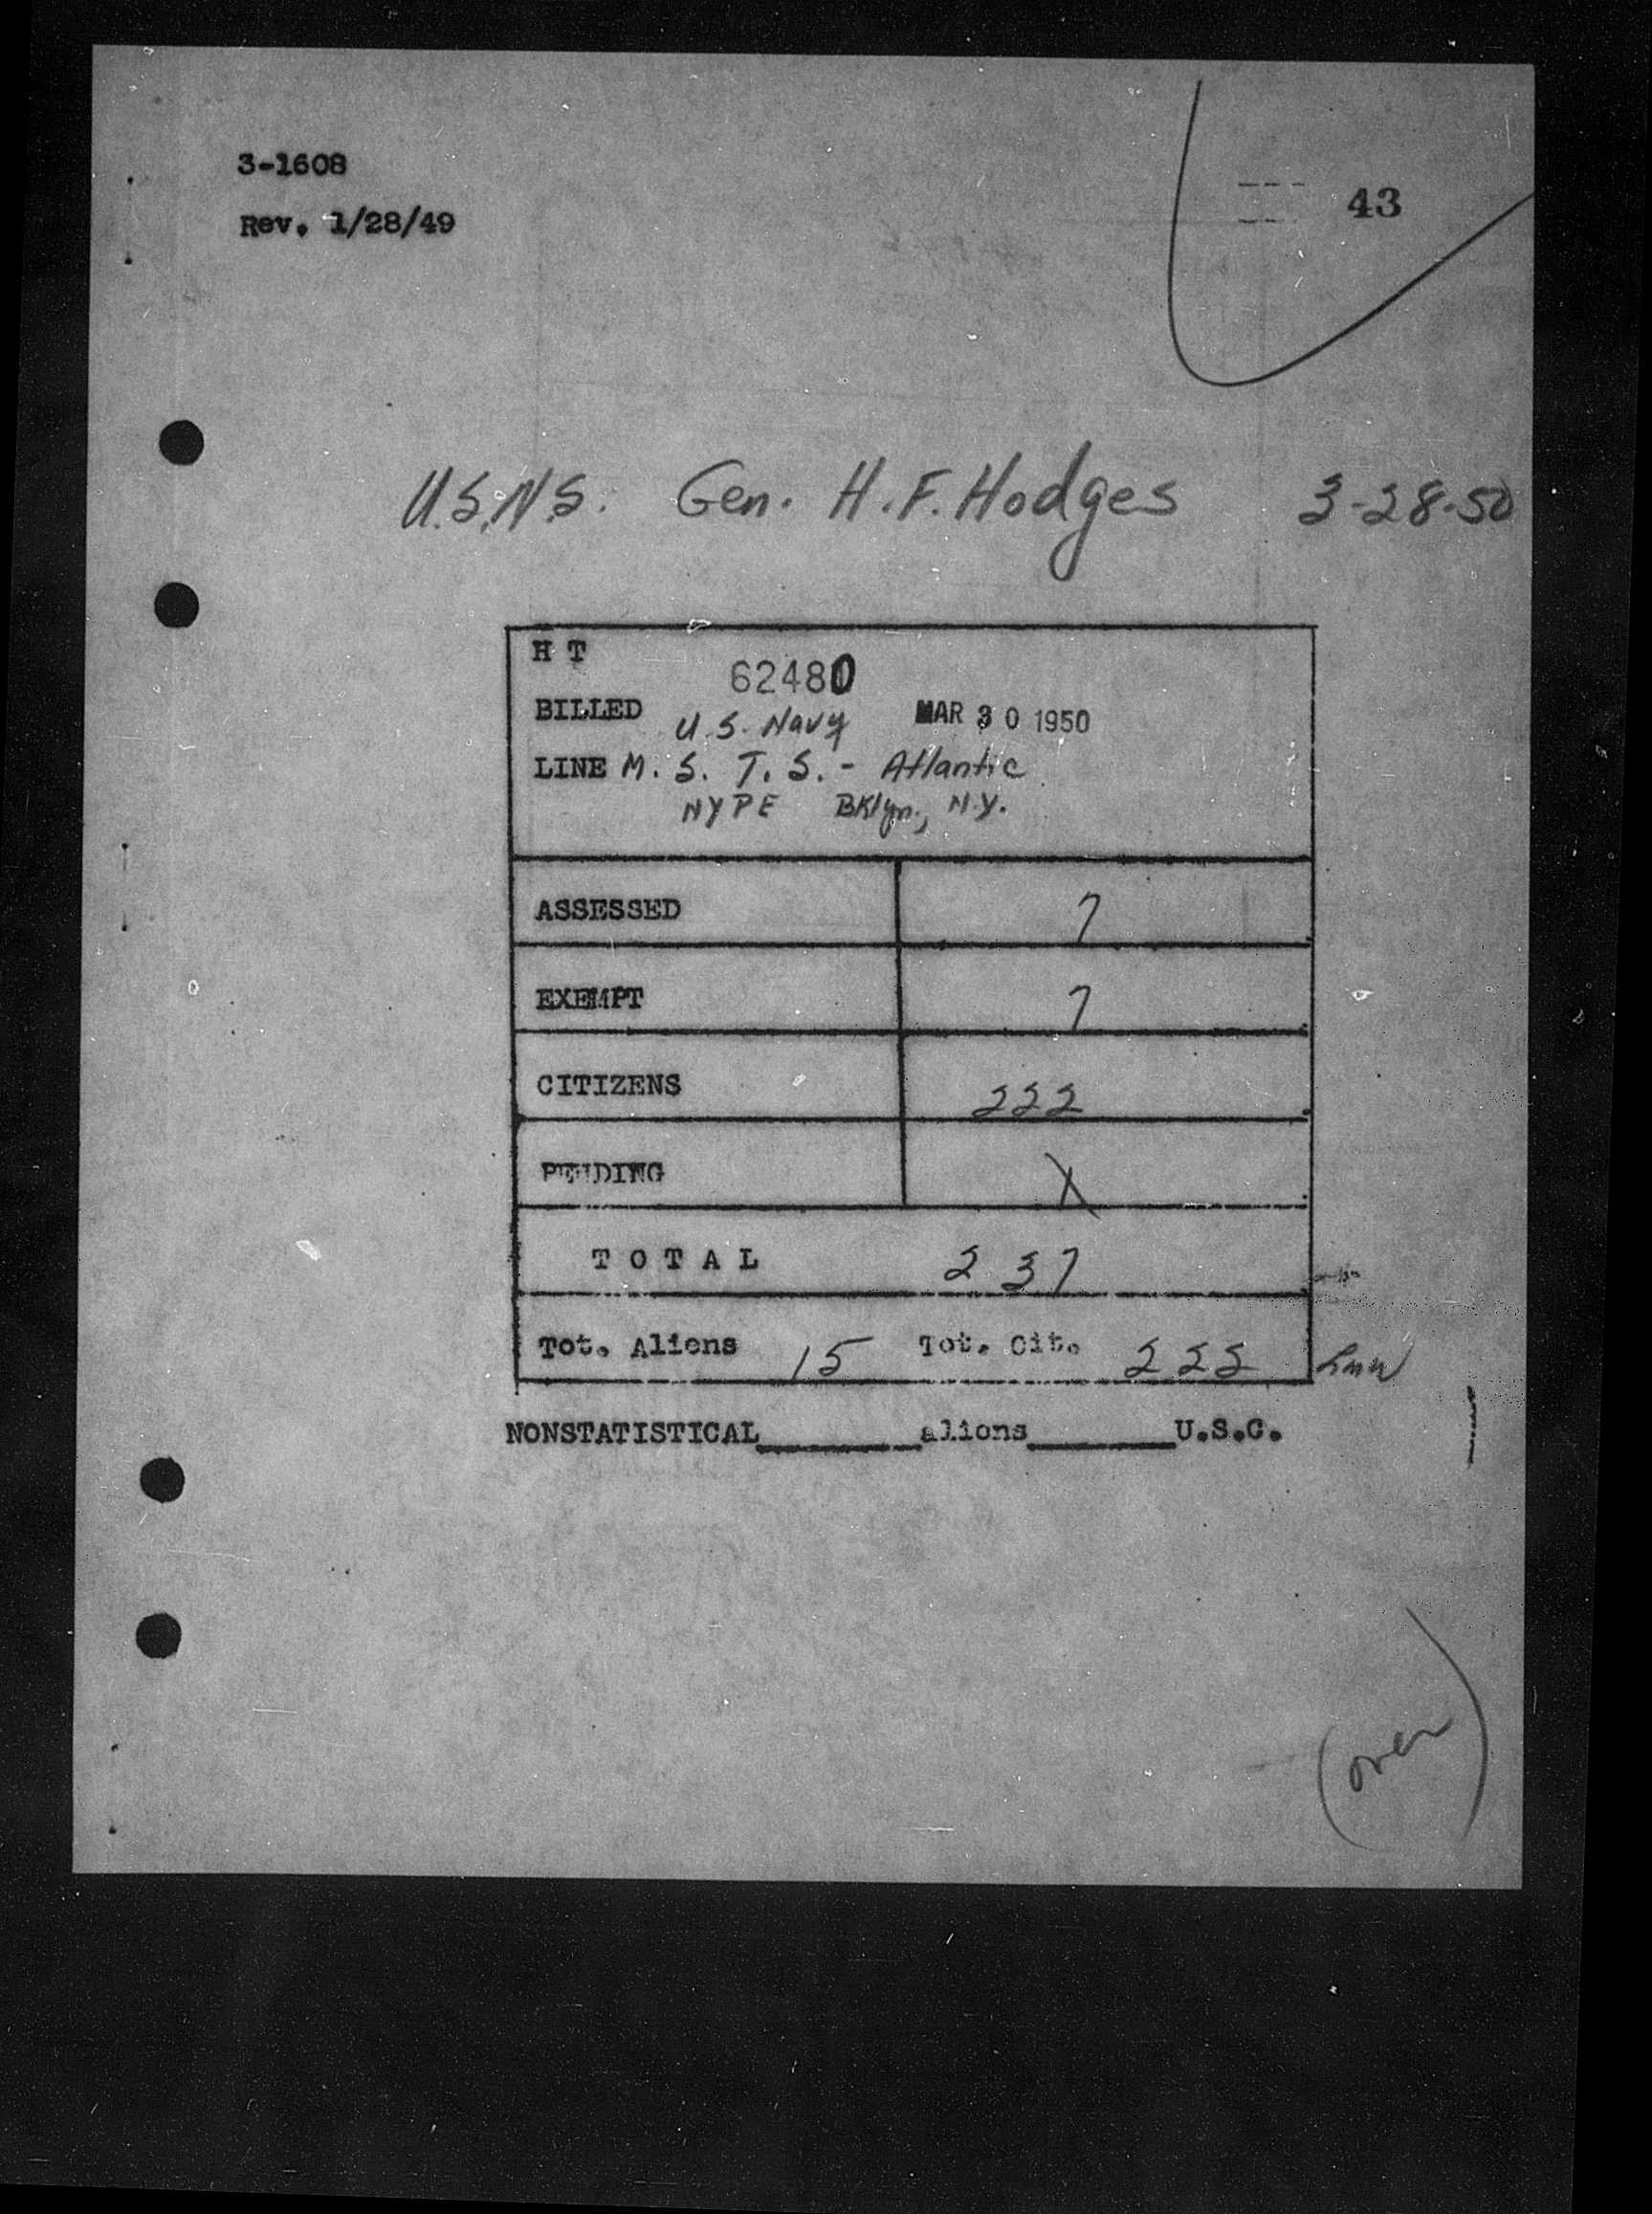 3-1608
43
Rev. 1/28/49
U.S.N.S. Gen. H.F. Hodges 3-28-50
H T
62480
BILLED U.S. Navy MAR 30 1950
LINE M. S. T. S. - Atlantic
NYPE BKlyn., N.Y.
ASSESSED 7
EXEMPT 7
CITIZENS 222
PENDING X
TOTAL 237
Tot. Aliens 15 Tot. Cit. 222
NONSTATISTICAL________aliens________U.S.C.
(over)